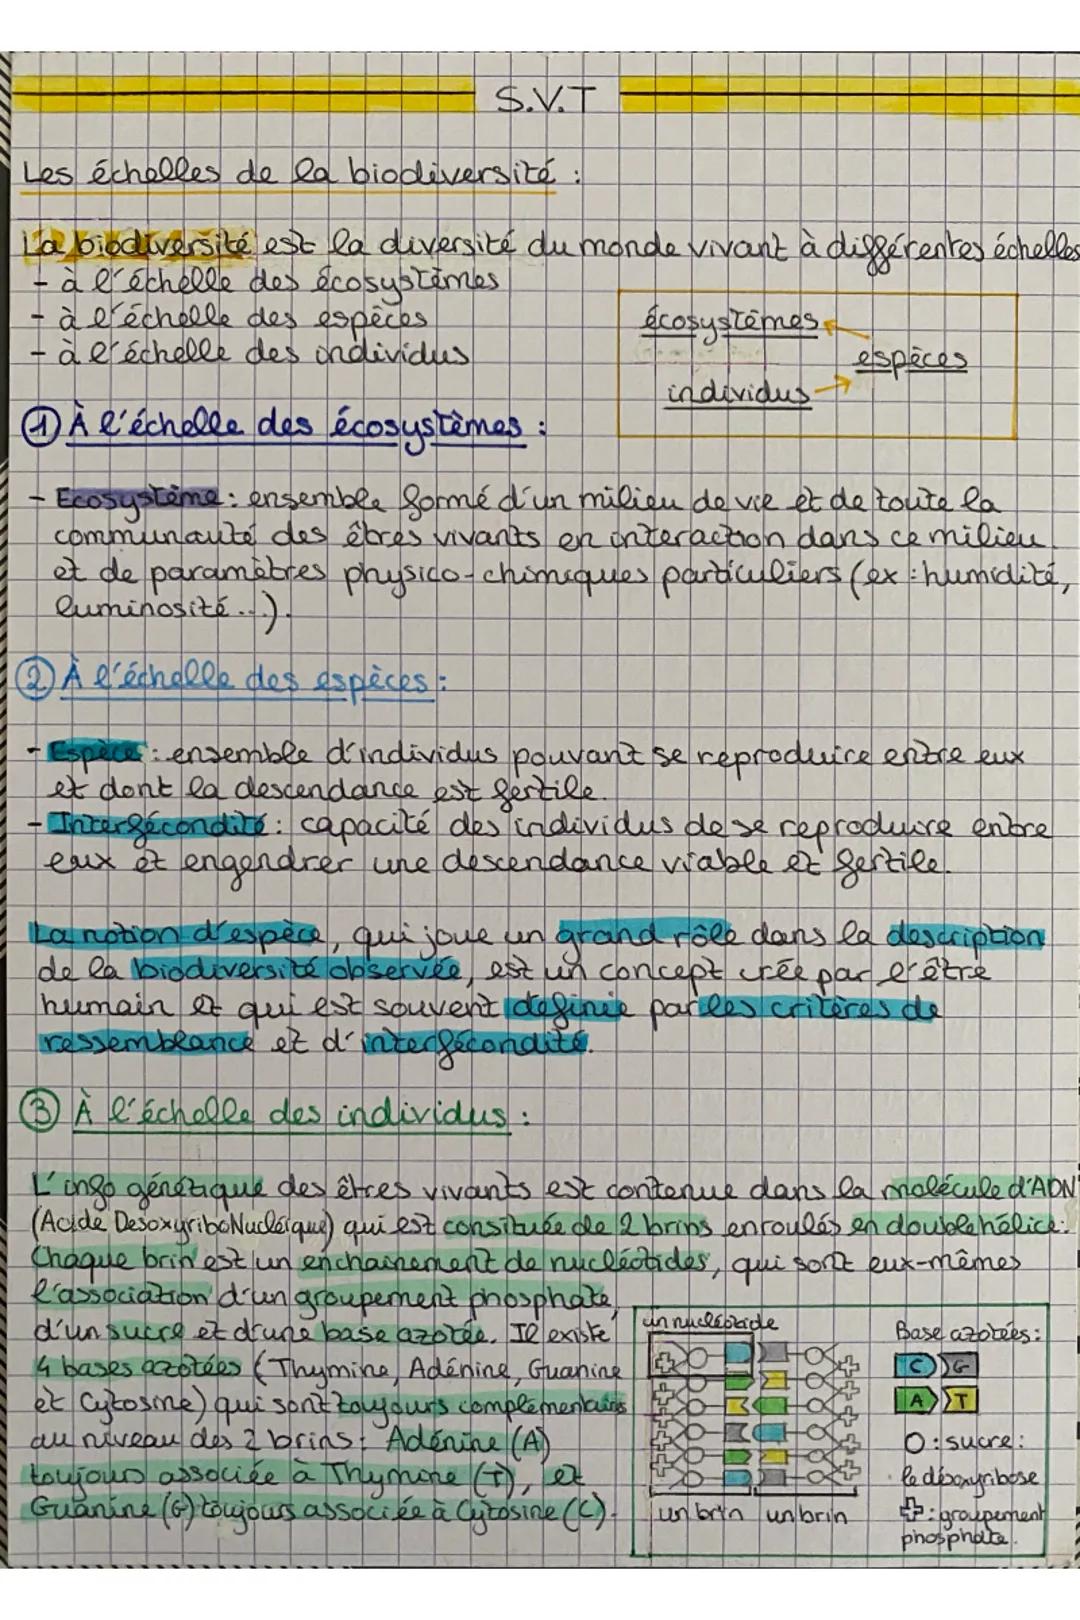 S.V.T
Les échelles de la biodiversité :
La biodiversité est la diversité du monde vivant à différentes échelles
- à l'échelle des écosystèmes
- à l'échelle des espèces
- à l'échelle des individus
écosystèmes
espèces
individus
① À l'échelle des écosystèmes :
- Ecosystème : ensemble formé d'un milieu de vie et de toute la
communauté des êtres vivants en interaction dans ce milieu
et de paramètres physico-chimiques particuliers (ex : humidité,
luminosité...).
② À l'échelle des espèces :
- Espèce : ensemble d'individus pouvant se reproduire entre eux
et dont la descendance est fertile.
- Interfécondité : capacité des individus de se reproduire entre
eux et engendrer une descendance viable et fertile.
La notion d'espèce, qui joue un grand rôle dans la description
de la biodiversité observée, est un concept crée par l'être
humain et qui est souvent définie par les critères de
ressemblance et d'interfécondité.
③ À l'échelle des individus :
L'info génétique des êtres vivants est contenue dans la molécule d'ADN
(Acide DésoxyriboNucléique) qui est consituée de 2 brins enroulés en double hélice.
Chaque brin est un enchainement de nucléotides, qui sont eux-mêmes
l'association d'un groupement phosphate,
d'un sucre et d'une base azotée. Il existe
4 bases azotées (Thymine, Adénine, Guanine
et Cytosine) qui sont toujours complémentaires
au niveau des 2 brins : Adénine (A)
toujours associée à Thymine (T), et
Guanine (G) toujours associée à Cytosine (C).
un nucléotide
un brin un brin
Base azotées :
C G
A T
O : sucre :
le désoxyribose
: groupement
phosphate.